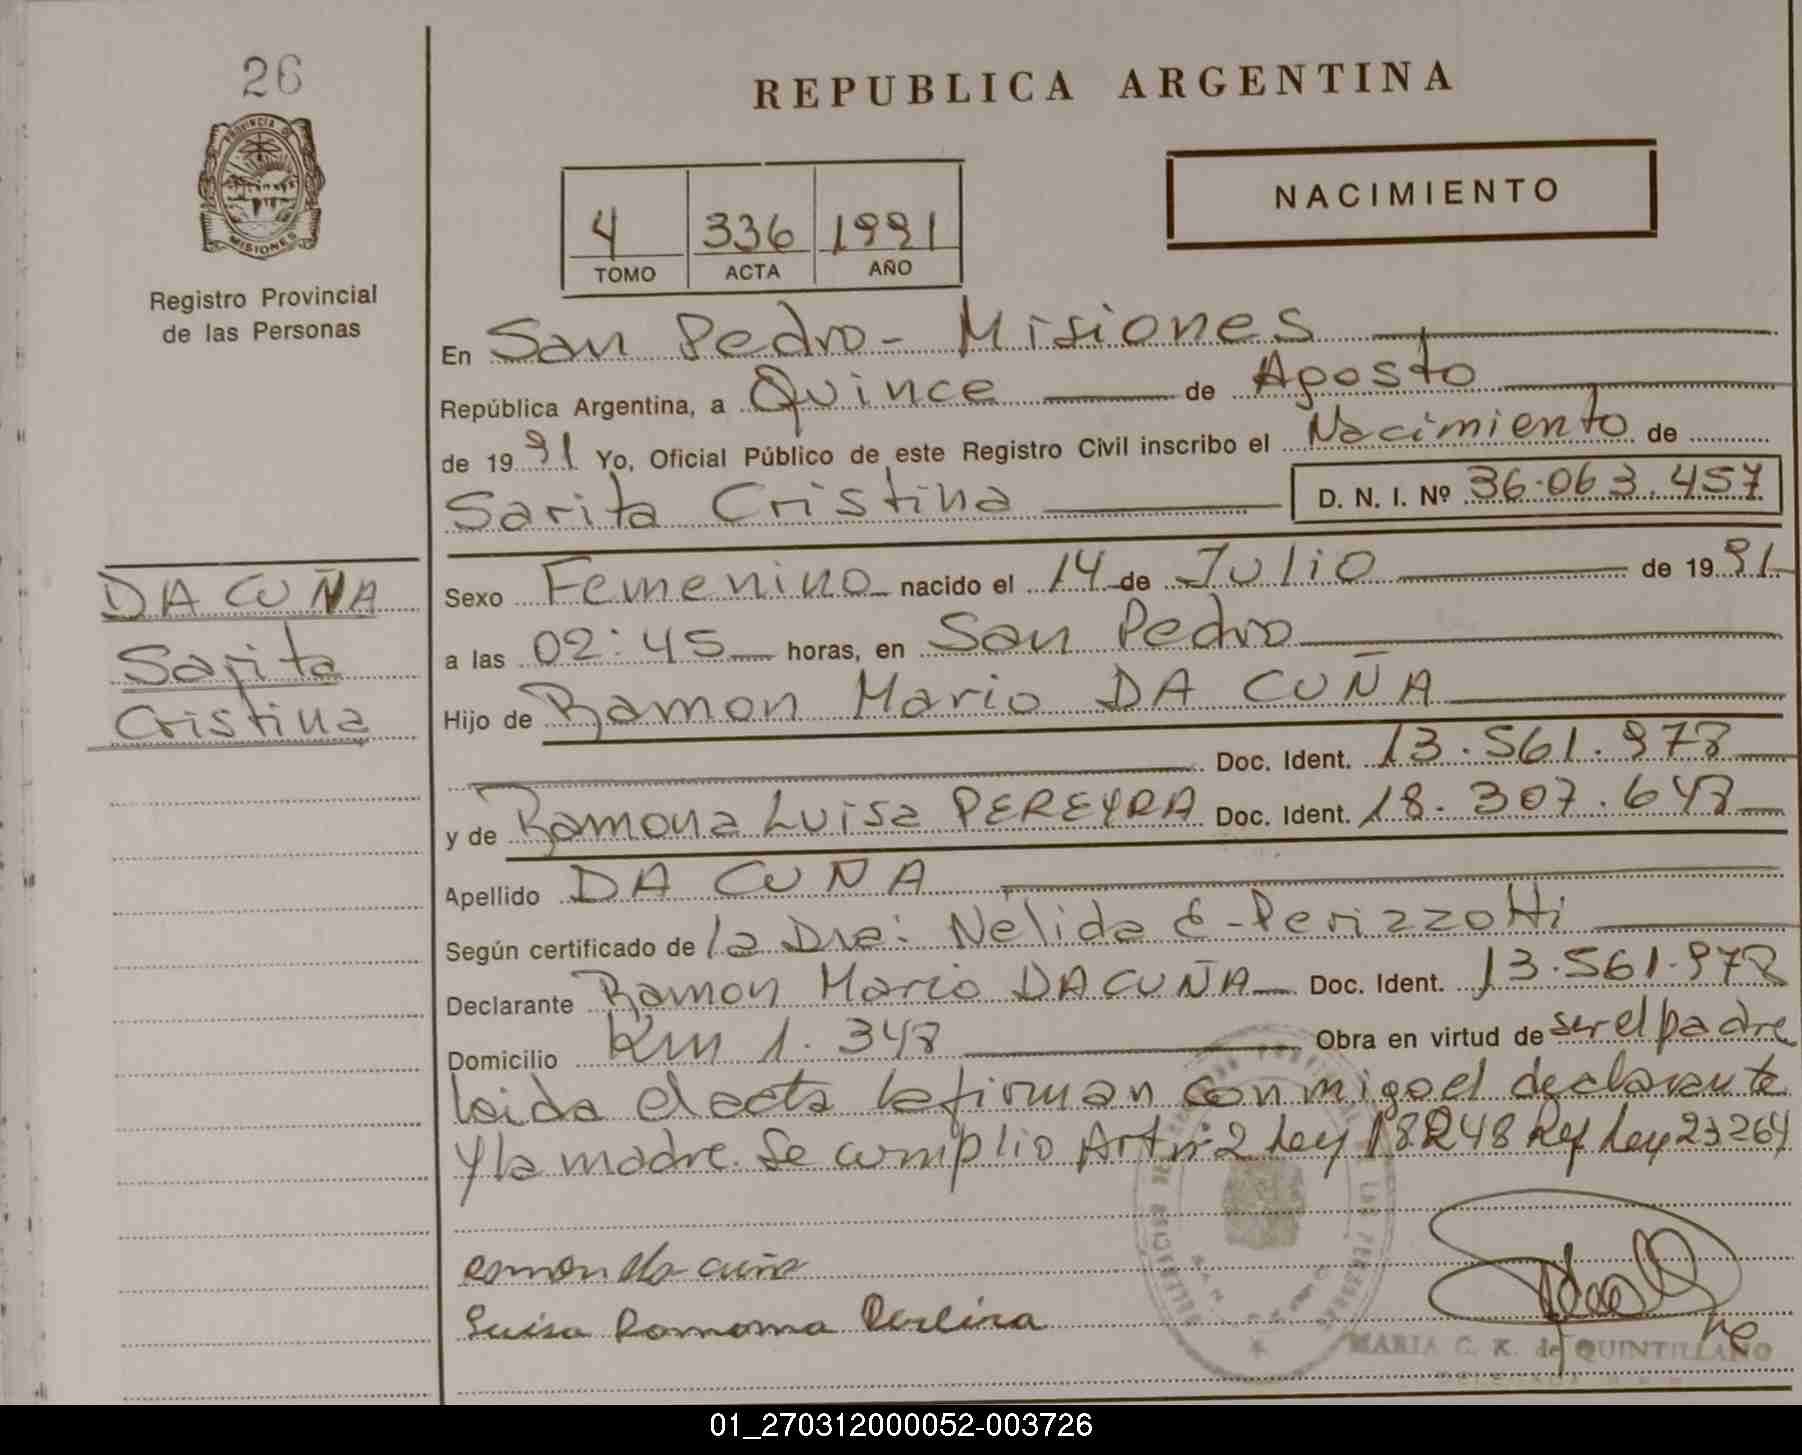 26
PROVINCIA DE
MISIONES
Registro Provincial
de las Personas
REPUBLICA ARGENTINA
NACIMIENTO
4 336 1991
TOMO ACTA AÑO
En San Pedro - Misiones
República Argentina, a Quince de Agosto
de 1991 Yo, Oficial Público de este Registro Civil inscribo el Nacimiento de
Sarita Cristina D. N. I. Nº 36.063.457
DA CUÑA
Sarita
Cristina
Sexo Femenino nacido el 14 de Julio de 1991
a las 02:45 horas, en San Pedro
Hijo de Ramon Mario DA CUÑA
Doc. Ident. 13.561.978
y de Ramona Luisa PEREYRA Doc. Ident. 18.307.648
Apellido DA CUÑA
Según certificado de la Dra: Nélida E. Perizzotti
Declarante Ramon Mario DA CUÑA Doc. Ident. 13.561.978
Domicilio Km 1.348 Obra en virtud de ser el padre
leida el acta la firman conmigo el declarante
y la madre. Se cumplio Art nº 2 Ley 18248 Ref Ley 23264
ramon da cuña
Luisa Ramona Pereira
MARIA C. K. de QUINTILLANO
01_270312000052-003726